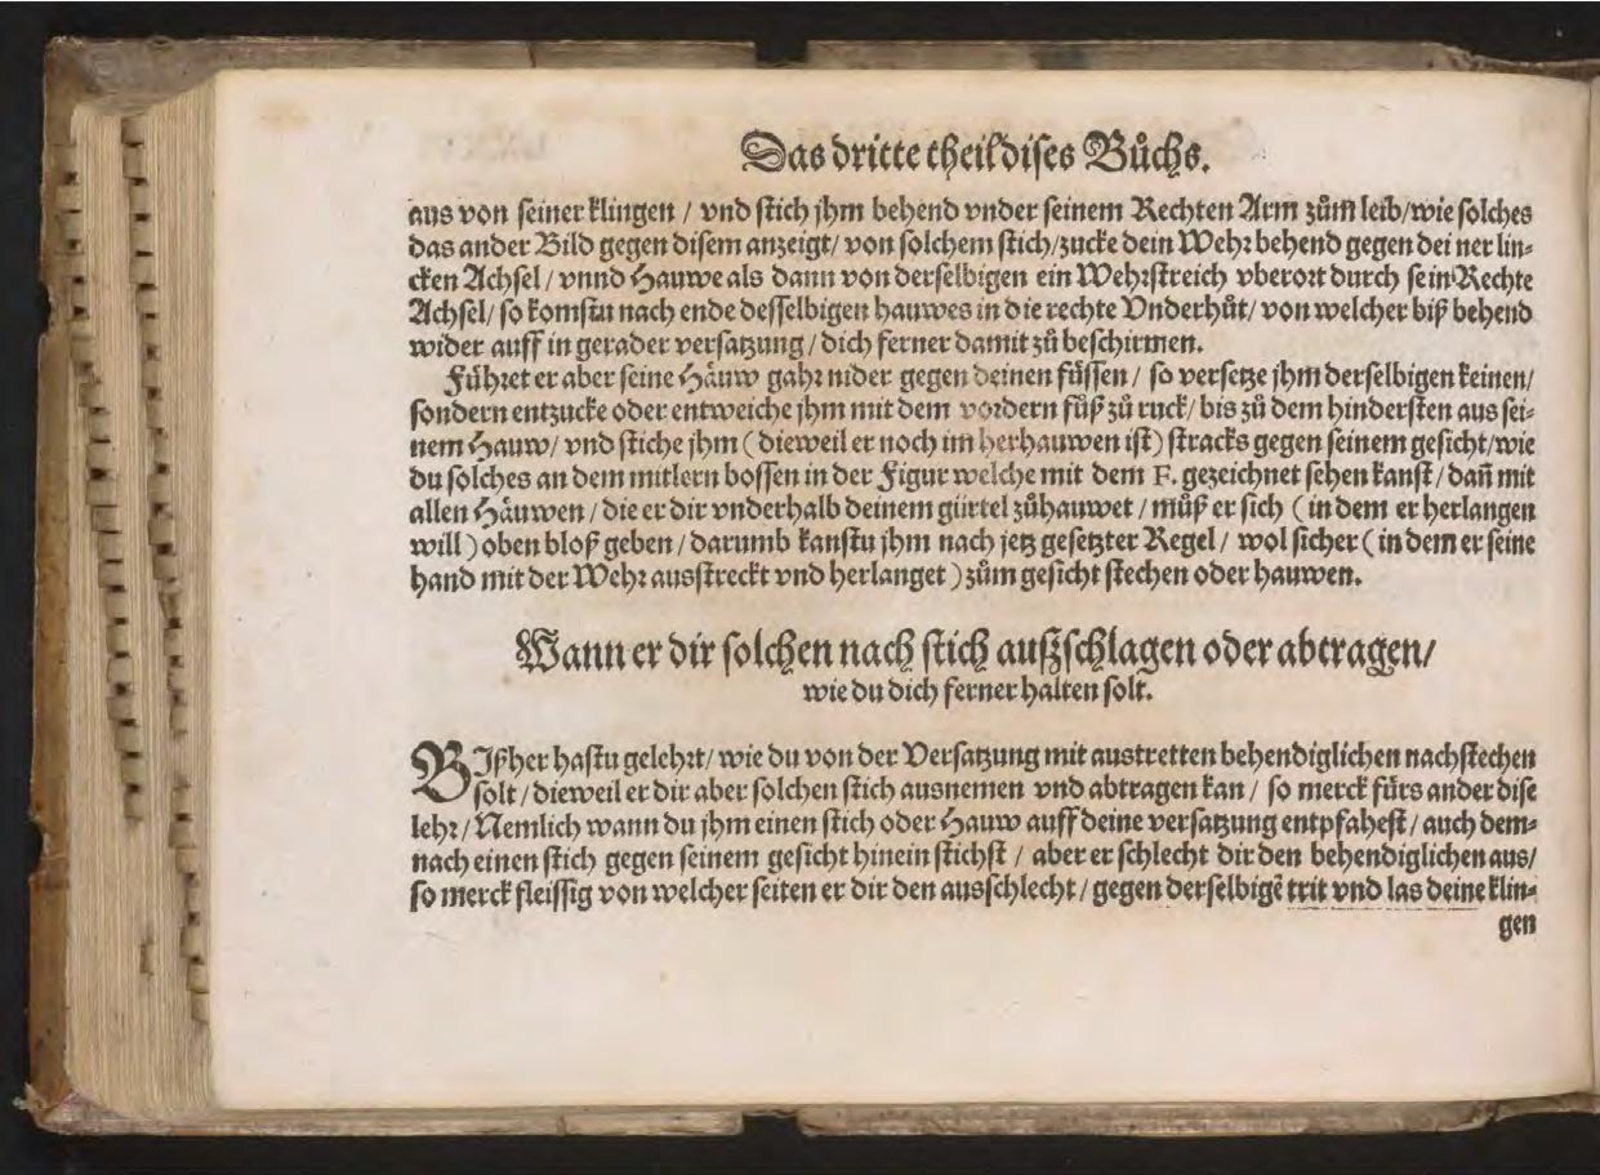 Das dritte theil dises Bůchs.
aus von seiner klingen / vnd stich jhm behend vnder seinem Rechten Arm zům leib/wie solches
das ander Bild gegen disem anzeigt/ von solchem stich/zucke dein Wehr behend gegen dei ner lin-
cken Achsel / vnnd Hauwe als dann von derselbigen ein Wehrstreich vberort durch sein Rechte
Achsel/ so komstu nach ende desselbigen hauwes in die rechte Vnderhůt/ von welcher biß behend
wider auff in gerader versatzung / dich ferner damit zů beschirmen.
Führet er aber seine Häuw gahr nider gegen deinen füssen / so versetze jhm derselbigen keinen/
sondern entzucke oder entweiche jhm mit dem vordern fůß zů ruck/ bis zů dem hindersten aus sei-
nem Hauw/ vnd stiche jhm (dieweil er noch im herhauwen ist) stracks gegen seinem gesicht/wie
du solches an dem mitlern bossen in der Figur welche mit dem F. gezeichnet sehen kanst / dañ mit
allen Häuwen / die er dir vnderhalb deinem gürtel zůhauwet / můß er sich (in dem er herlangen
will) oben bloß geben / darumb kanstu jhm nach jetz gesetzter Regel / wol sicher (in dem er seine
hand mit der Wehr ausstreckt vnd herlanget) zům gesicht stechen oder hauwen.
Wann er dir solchen nach stich außschlagen oder abtragen/
wie du dich ferner halten solt.
BIßher hastu gelehrt/ wie du von der Versatzung mit austretten behendiglichen nachstechen
solt / dieweil er dir aber solchen stich ausnemen vnd abtragen kan / so merck fürs ander dise
lehr / Nemlich wann du jhm einen stich oder Hauw auff deine versatzung entpfahest / auch dem-
nach einen stich gegen seinem gesicht hinein stichst / aber er schlecht dir den behendiglichen aus/
so merck fleissig von welcher seiten er dir den ausschlecht / gegen derselbigē trit vnd las deine klin-
gen